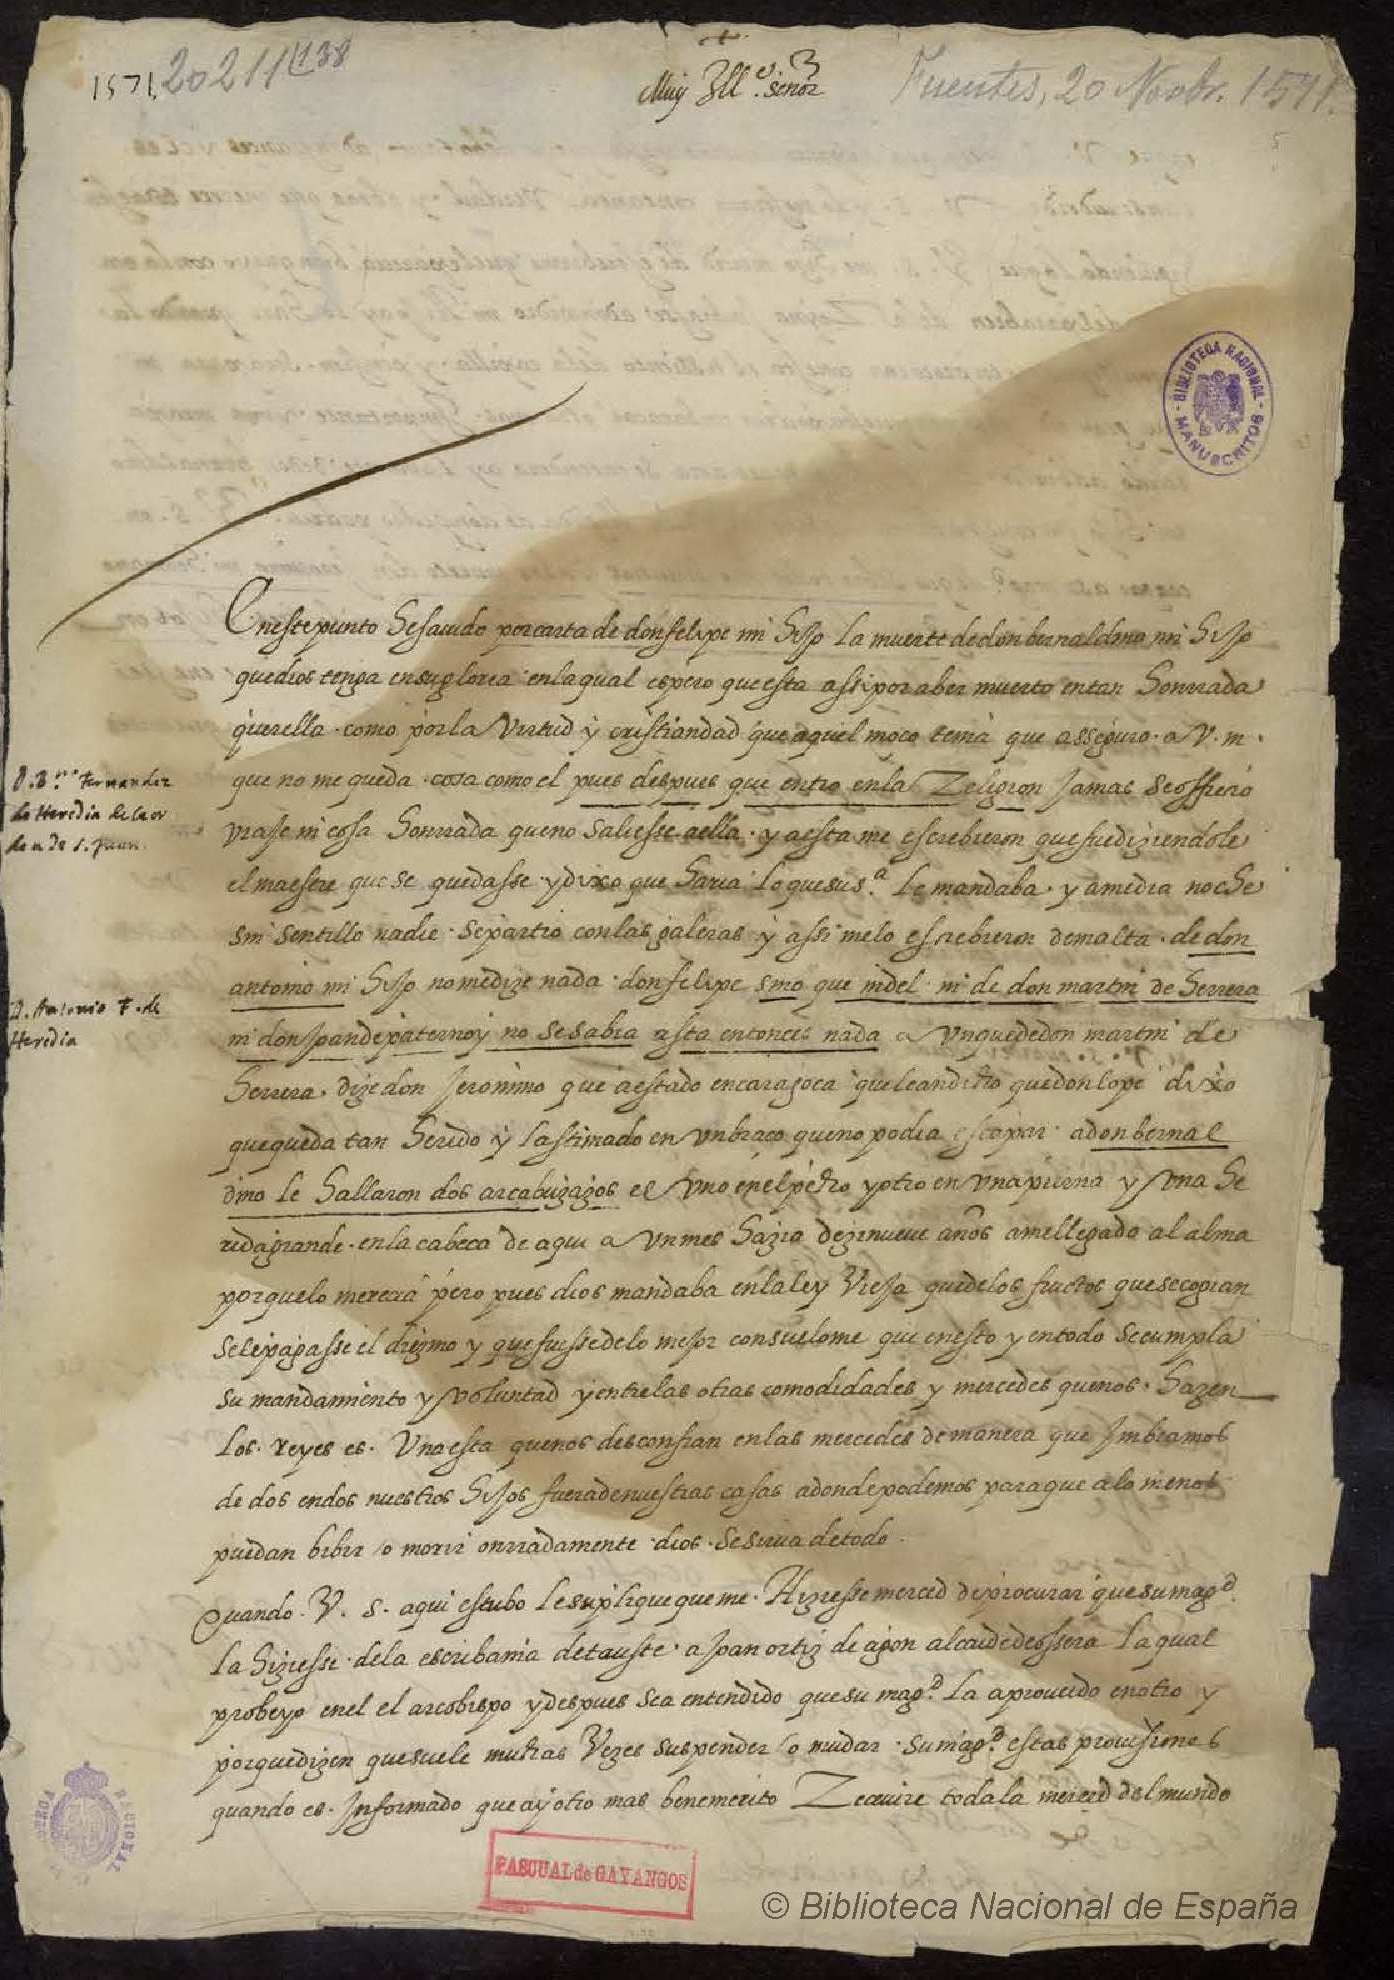 1571,
20211/138
+
Muy Ill.e señor
Fuentes, 20 Novbr. 1571.
BIBLIOTECA NACIONAL
MANUSCRITOS
En este punto he savido por carta de don felipe mi hijo la muerte de don bernaldino mi hijo
que dios tenga en su gloria en la qual espero que esta assi por aber muerto en tan honrrada
querella como por la virtud y cristiandad que aquel moço tenia que asseguro a V. m.
que no me queda cosa como el pues despues que entro en la Religion jamas se offrecio
viaje ni cosa honrrada que no saliesse a ella y a esta me escrebieron que fue diziendole
el maestre que se quedasse y dixo que haria lo que su s.a le mandaba y a media noche
sin sentillo nadie se partio con las galeras y assi me lo escrebieron de malta de don
antonio mi hijo no me dize nada don felipe sino que ni del ni de don martin de herrera
ni don juan de paternoy no se sabia asta entonces nada
Herrera dize don Jeronimo que a estado en caragoça que le an dicho que don lope dixo
que queda tan herido y lastimado en un braço que no podia escapar a don bernal
dino le hallaron dos arcabuzazos el uno en el pecho y otro en una pierna y una he
rida grande en la cabeca de aqui a un mes hazia dezinueve años a me llegado al alma
porque lo merecia pero pues dios mandaba en la ley vieja que de los fructos que se cogian
se le pagasse el diezmo y que fuesse de lo mejor consuelome que en esto y en todo se cumpla
su mandamiento y voluntad y entre las otras comodidades y mercedes que nos hazen
los reyes es una esta que nos desconfian en las mercedes de manera que imbiamos
de dos en dos nuestros hijos fuera de nuestras casas a donde podemos para que a lo menos
puedan bibir o morir onrradamente dios se sirva de todo.
Quando V. s. aqui estubo le suplique que me hiziesse merced de procurar que su mag.d
la hiziesse de la escribania de tauste a juan ortiz de agon alcaide de ossera la qual
probeyo en el el arcobispo y despues se a entendido que su mag.d la a proueido en otro y
porque dizen que suele muchas vezes suspender o mudar su mag.d estas prouisiones
quando es informado que ay otro mas benemerito Receuire toda la merced del mundo
D. B.no Fernandez
de Heredia de la or
den de S. Juan.
D. Antonio F. de
Heredia
PASCUAL de GAYANGOS
© Biblioteca Nacional de España